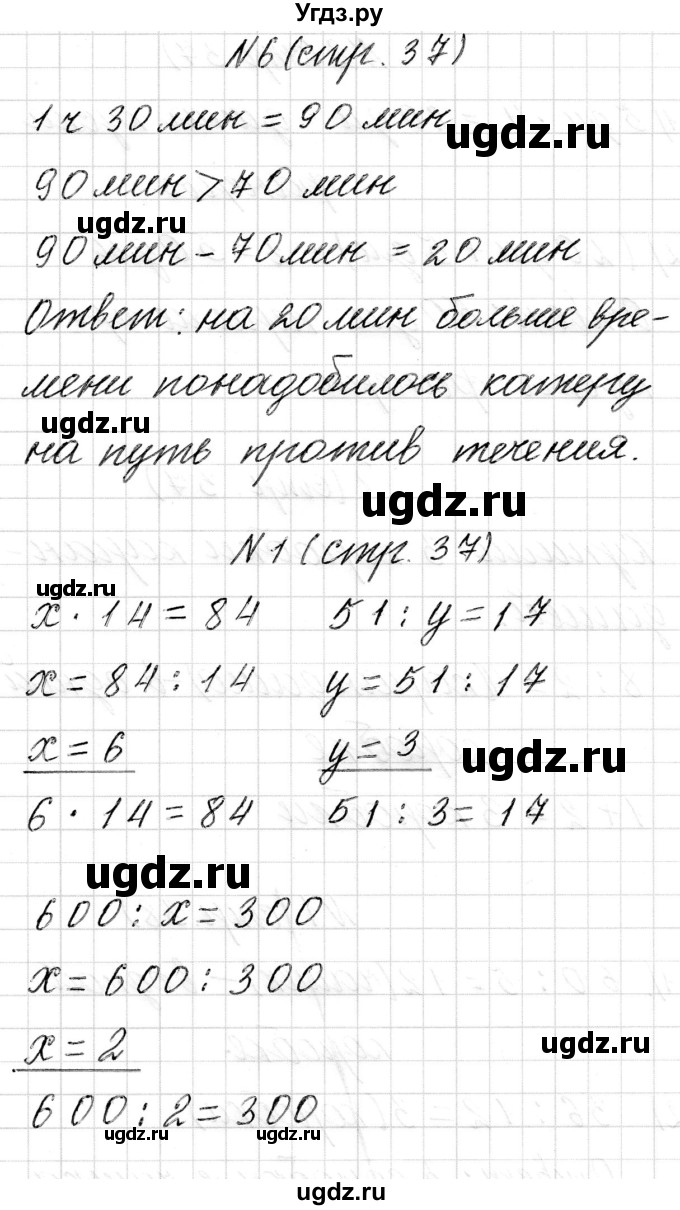 Угдз.ру
N6 (стр. 37)
1 ч 30 мин = 90 мин
ugdz.ru
90 мин > 70 мин
ugdz.ru
90 мин - 70 мин = 20 мин
Ответ: на 20 мин больше вре-
мени понадобилось катеру
ugdz.ru
на путь против течения.
ugdz.ru
N1 (стр. 37)
ugdz.ru
x · 14 = 84 51 : y = 17
x = 84 : 14 y = 51 : 17
x = 6 y = 3
ugdz.ru
6 · 14 = 84 51 : 3 = 17
ugdz.ru
600 : x = 300
x = 600 : 300
x = 2
ugdz.ru
600 : 2 = 300
ugdz.ru ugdz.ru
ugdz.ru